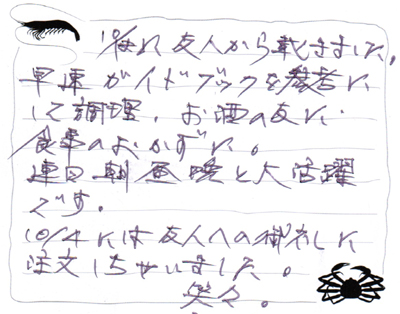 友人から戴きました。
早速ガイドブックを参考に
して調理、お酒の友に
食事のおかずに。
連日朝昼晩と大活躍
です。
10/4には友人への御礼に
注文しちゃいました。
笑々。